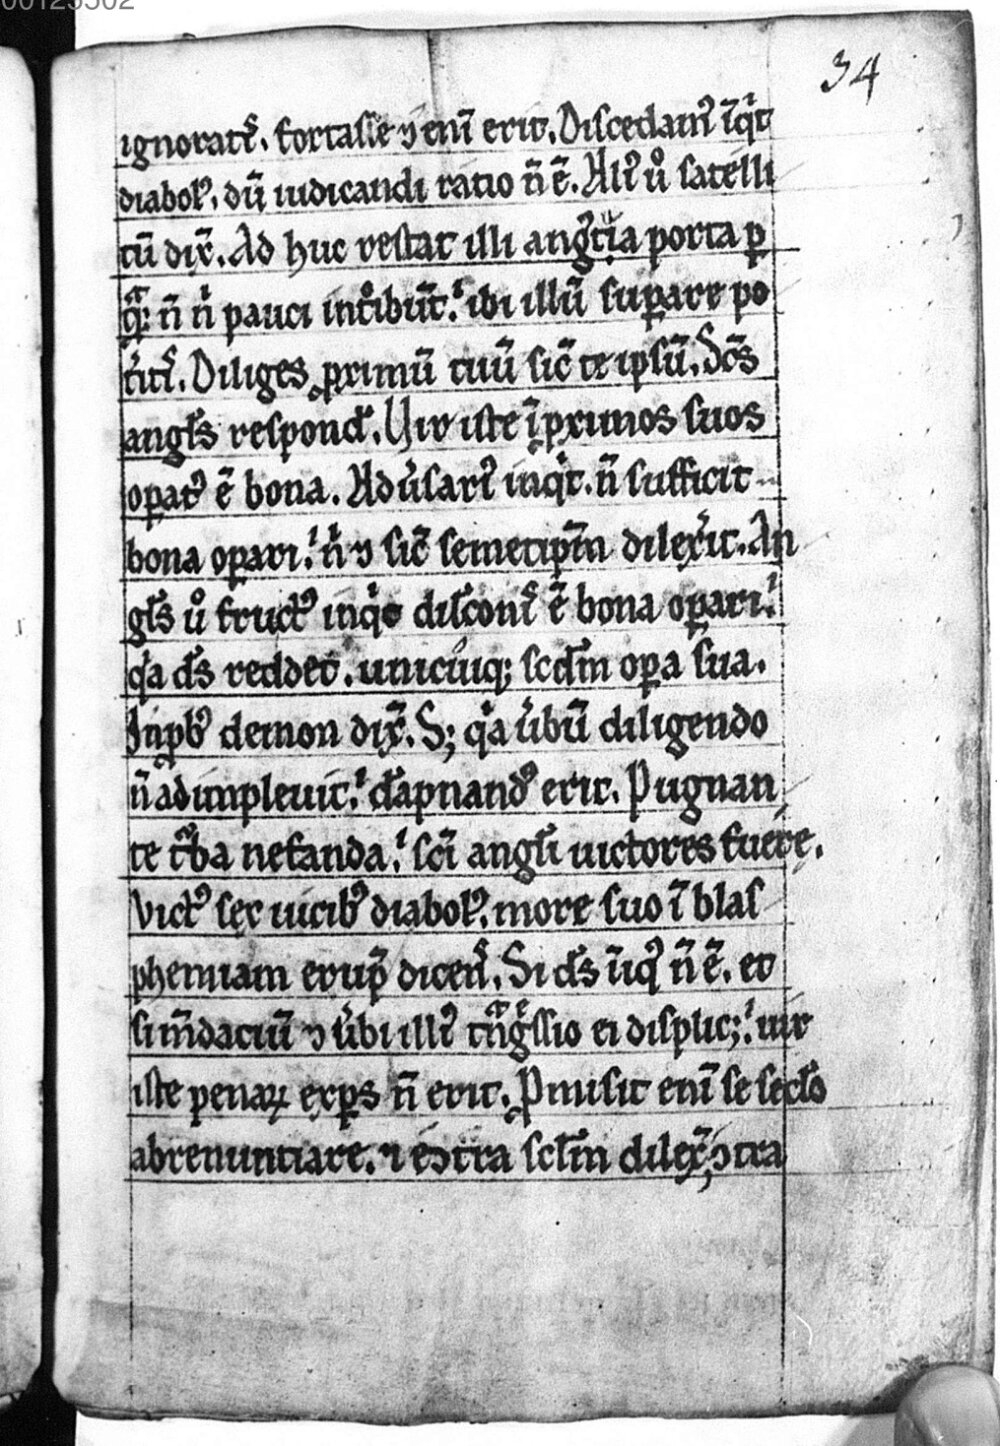 00125502
34
ignoratẜ. fortasse ⁊ enī erit. Discedamꝰ īqͥt
diabolꝰ. dū iudicandi ratio n̄ ē. Alīꝰ uͦ satelli
tū dix̄. Ad huc restat illi angͥtia porta ꝑ
qᷓ: n̄ nͥ pauci intͣibūt. ibi illū suꝑare po
tͥitꝭ. Diliges ꝓximū tuū sic̄ te ipsū. Dc̄s
angłs respond̄. Vir iste ī ꝓximos suos
oꝑatꝰ ē bona. Adūsariꝰ inqͥt. n̄ sufficit
bona oꝑari. nͥ ⁊ sic̄ semetip̄m dilex̄it. An
głs uͦ fructꝰ inqͥt disconī ē bona oꝑari.
qͥa ds̄ reddet. unicuiqꝫ scdm̄ oꝑa sua.
Inꝓbꝰ demon dix̄. Sꝫ qͥa ūbū diligendo
n̄ adimpleuit. dāpnandꝰ erit. Pugnan
te tͥba nefanda. sc̄i angłi uictores fuere.
Victꝰ sec uicibꝰ diabolꝰ. more suo ī blas
phemiam erup̄ dicenꝭ. Si ds̄ īiqꝰ n̄ ē. et
si m̄daciū ⁊ ūbi illiꝰ tͣngͤssio ei displicꝫ. uir
iste penaꝝ exꝑs n̄ erit. Ꝓmisit enī se secło
abrenuntiare. ⁊ eↄtra scłm dilex̄. ↄtra